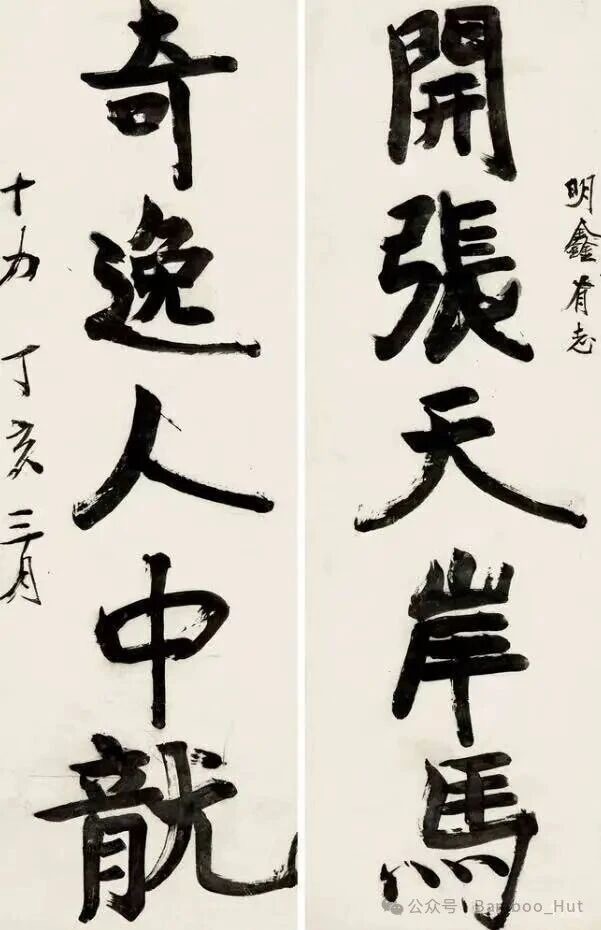 開張天岸馬
明鑫有志
奇逸人中龍
十力 丁亥三月
公众号 · Bamboo_Hut